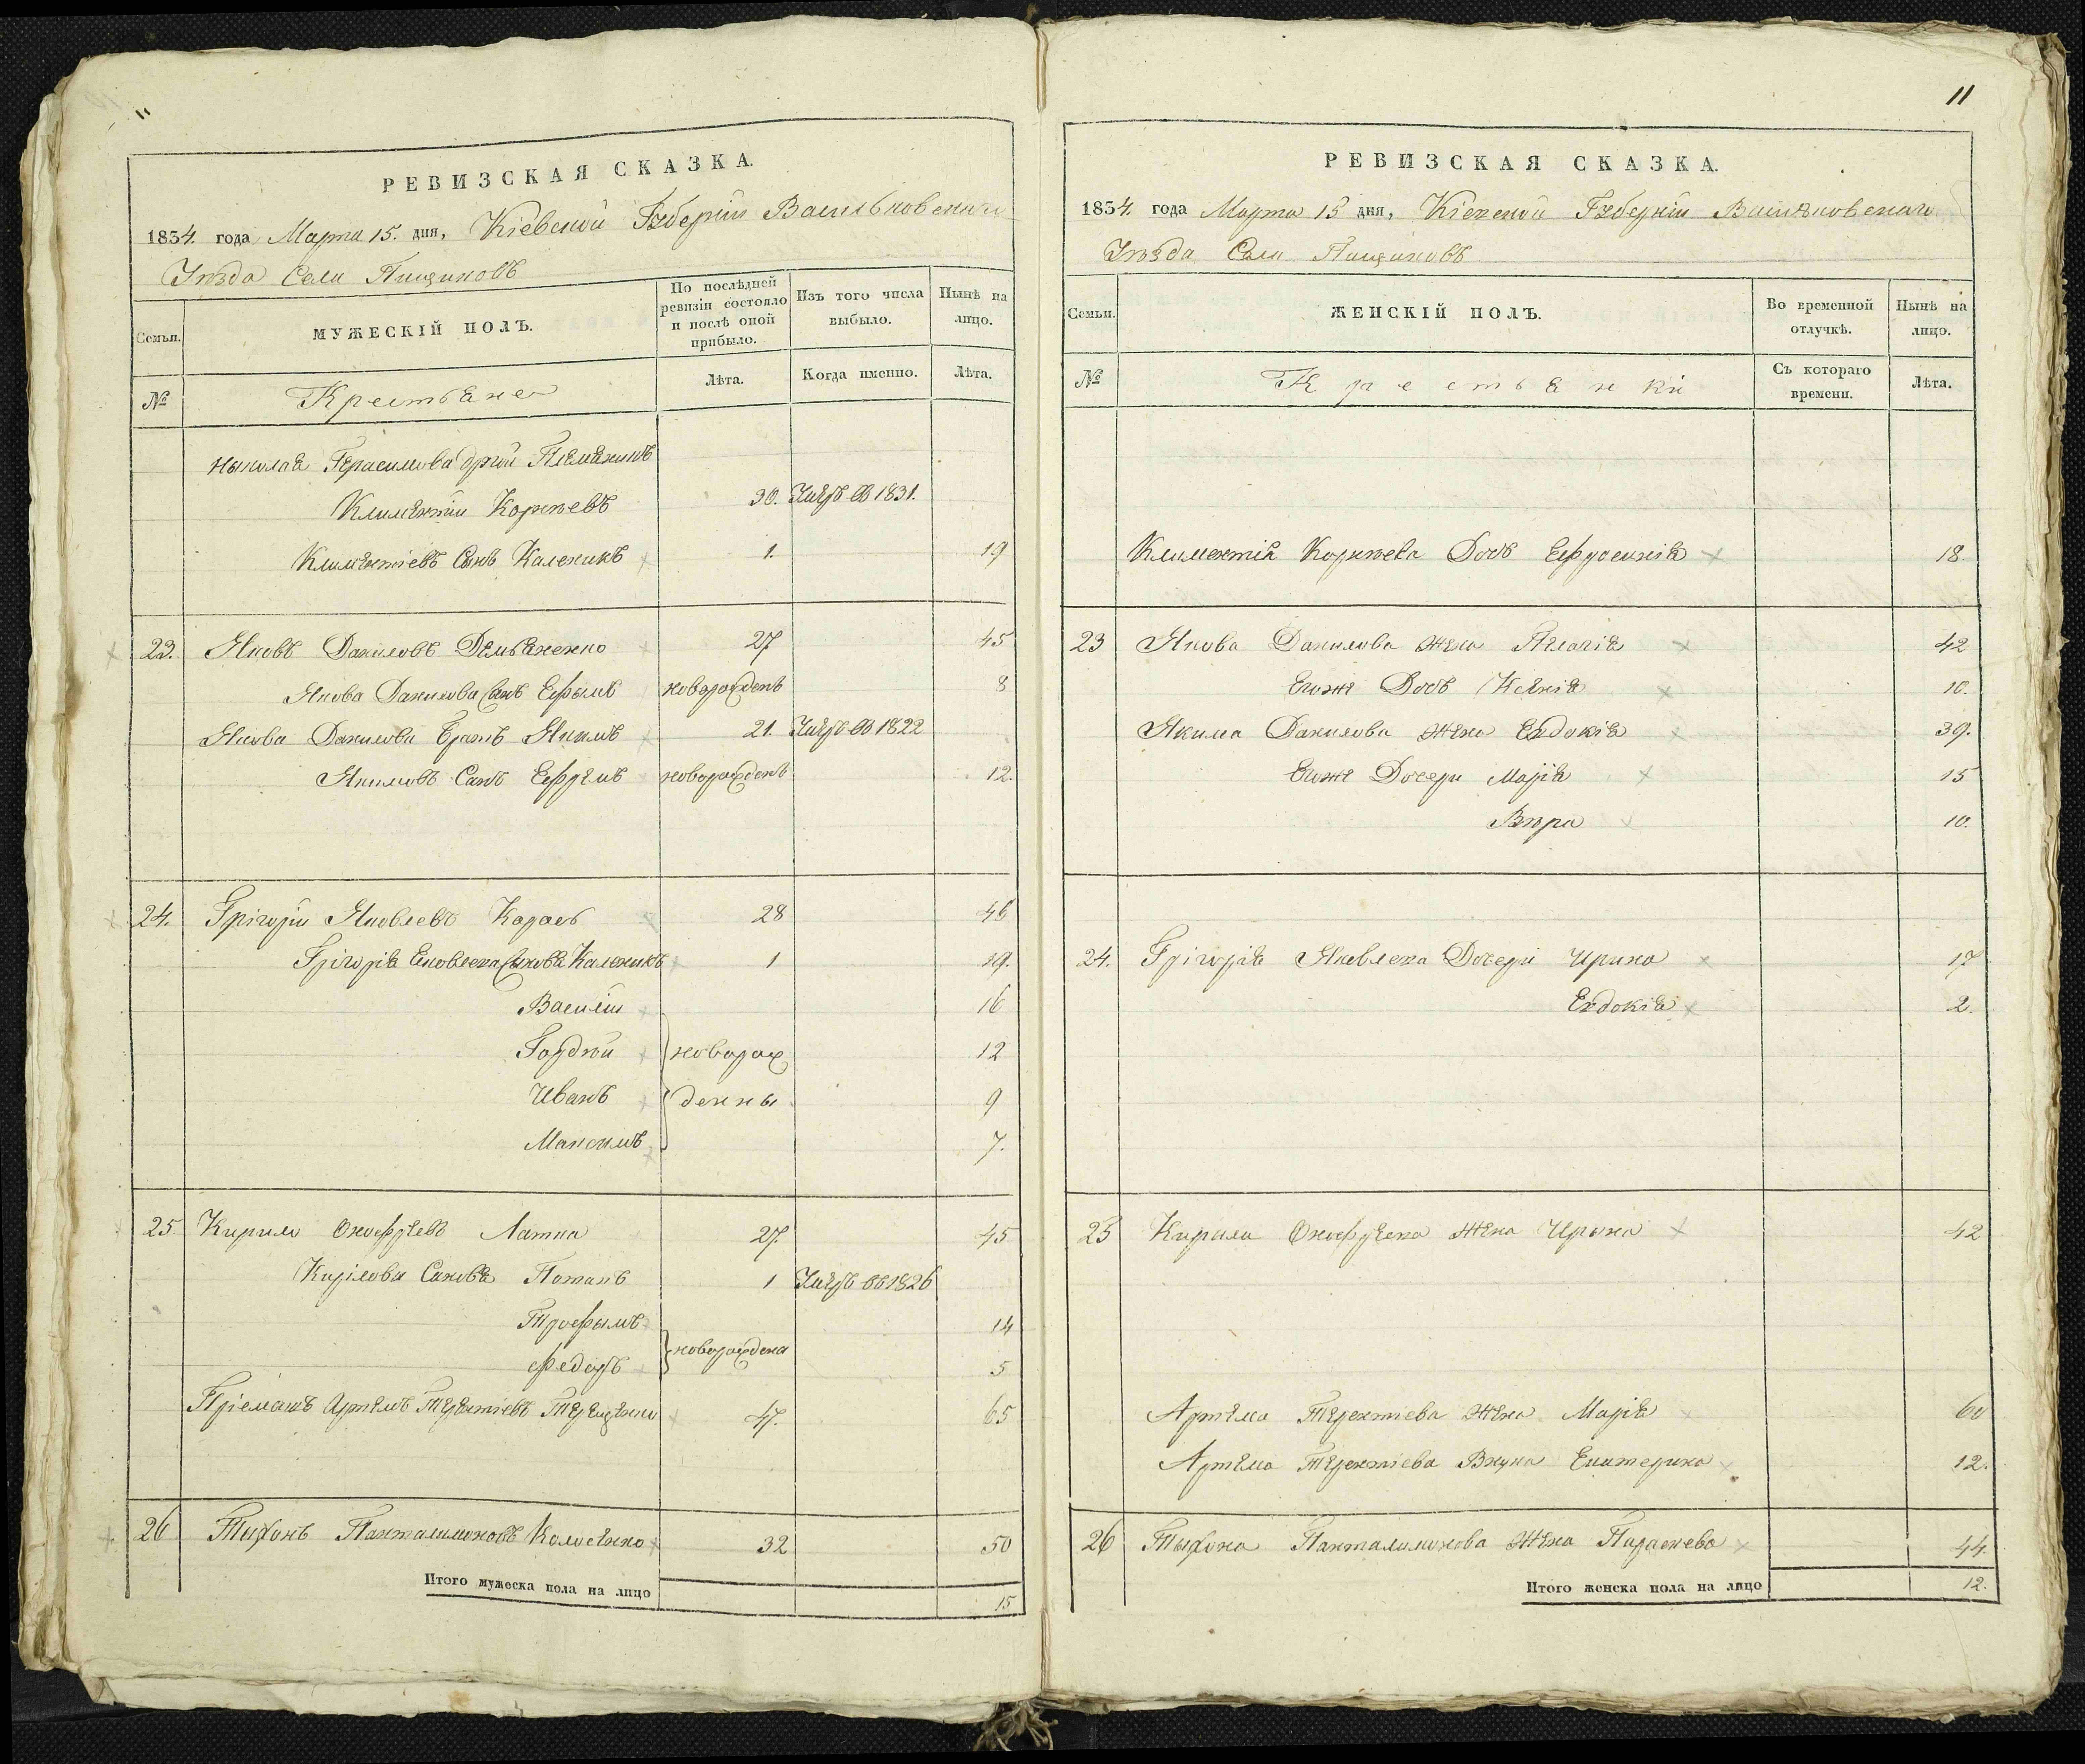 11
РЕВИЗСКАЯ СКАЗКА.
1834. года Марта 15. дня, Кіевской Губерніи Васильковскаго
Уѣзда Села Пищиковъ
Семьи.
МУЖЕСКІЙ ПОЛЪ.
По послѣдней ревизіи состояло и послѣ оной прибыло.
Изъ того числа выбыло.
Нынѣ на лицо.
№
Крестьяне
Лѣта.
Когда именно.
Лѣта.
Николая Герасимова другой Племянникъ
Климентій Корнѣевъ 30. Умеръ въ 1831.
Климентіевъ Сынъ Каленикъ 1. 19
23. Яковъ Даниловъ Демьяненко 27 45
Якова Данилова Сынъ Ефымъ новорожденъ 8
Якова Данилова Братъ Якимъ 21. Умеръ въ 1822
Якимовъ Сынъ Ефремъ новорожденъ 12.
24. Грігорій Яковлевъ Карась 28 46
Грігорія Яковлева Сыновья Каленикъ 1 19.
Василій 16
Гордѣй новорож 12
Иванъ денны 9
Максимъ 7.
25 Кирило Онофреевъ Латка 27. 45
Кирілова Сыновья Потапъ 1 Умеръ въ 1826
Трофымъ 14
Федоръ новорождена 5
Пріемышъ Артемъ Терентіевъ Терещенко 47. 65
26 Тихонъ Панталимоновъ Колосѣнко 32 50
Итого мужеска пола на лицо 15
11
РЕВИЗСКАЯ СКАЗКА.
1834. года Марта 15 дня, Кіевской Губерніи Васильковскаго
Уѣзда Села Пищиковъ
Семьи.
ЖЕНСКІЙ ПОЛЪ.
Во временной отлучкѣ.
Нынѣ на лицо.
№
Крестьянки
Съ котораго времени.
Лѣта.
Климентія Корнѣева Дочь Ефросинія 18.
23 Якова Данилова Жена Пелагія 42
Егоже Дочь Ксенія 10.
Якима Данилова Жена Евдокія 39.
Егоже Дочери Марія 15
Вѣра 10.
24. Грігорія Яковлева Дочери Ирина 17
Евдокія 2.
25 Кирила Онофреева Жена Ирина 42
Артема Терентіева Жена Марія 60
Артема Терентіева Внука Екатерина 12.
26 Тыхона Панталимонова Жена Параскева 44.
Итого женска пола на лицо 12.